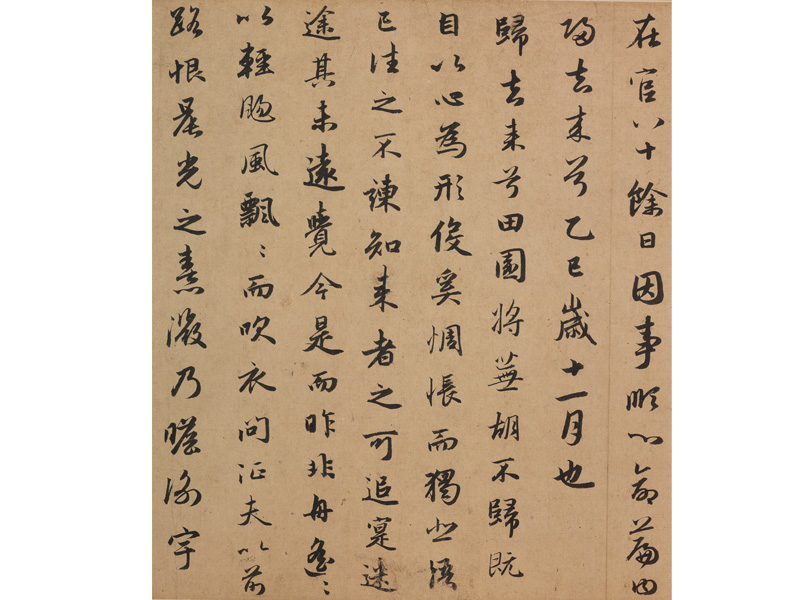 在官八十餘日因事順心命篇曰
歸去来兮乙巳歲十一月也
歸去来兮田園將蕪胡不歸既
自以心為形役奚惆悵而獨悲悟
已往之不諫知来者之可追寔迷
途其未遠覺今是而昨非舟遙〻
以輕颺風飄〻而吹衣問征夫以前
路恨晨光之熹微乃瞻衡宇